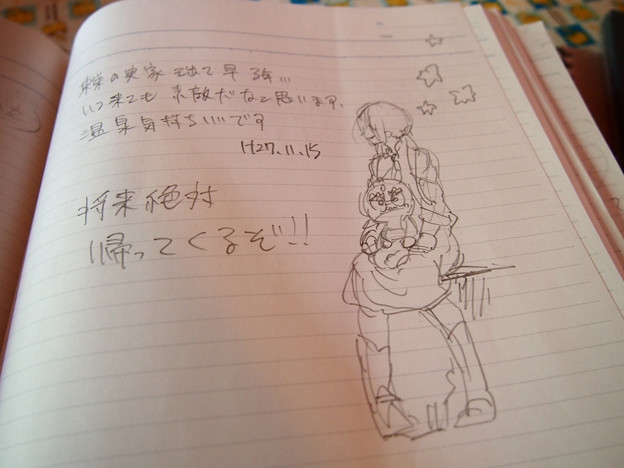 の実家を出て早3年…
いつ来ても素敵だなと思います。
温泉気持ちいいです
H27.11.15
将来絶対
帰ってくるぞ!!